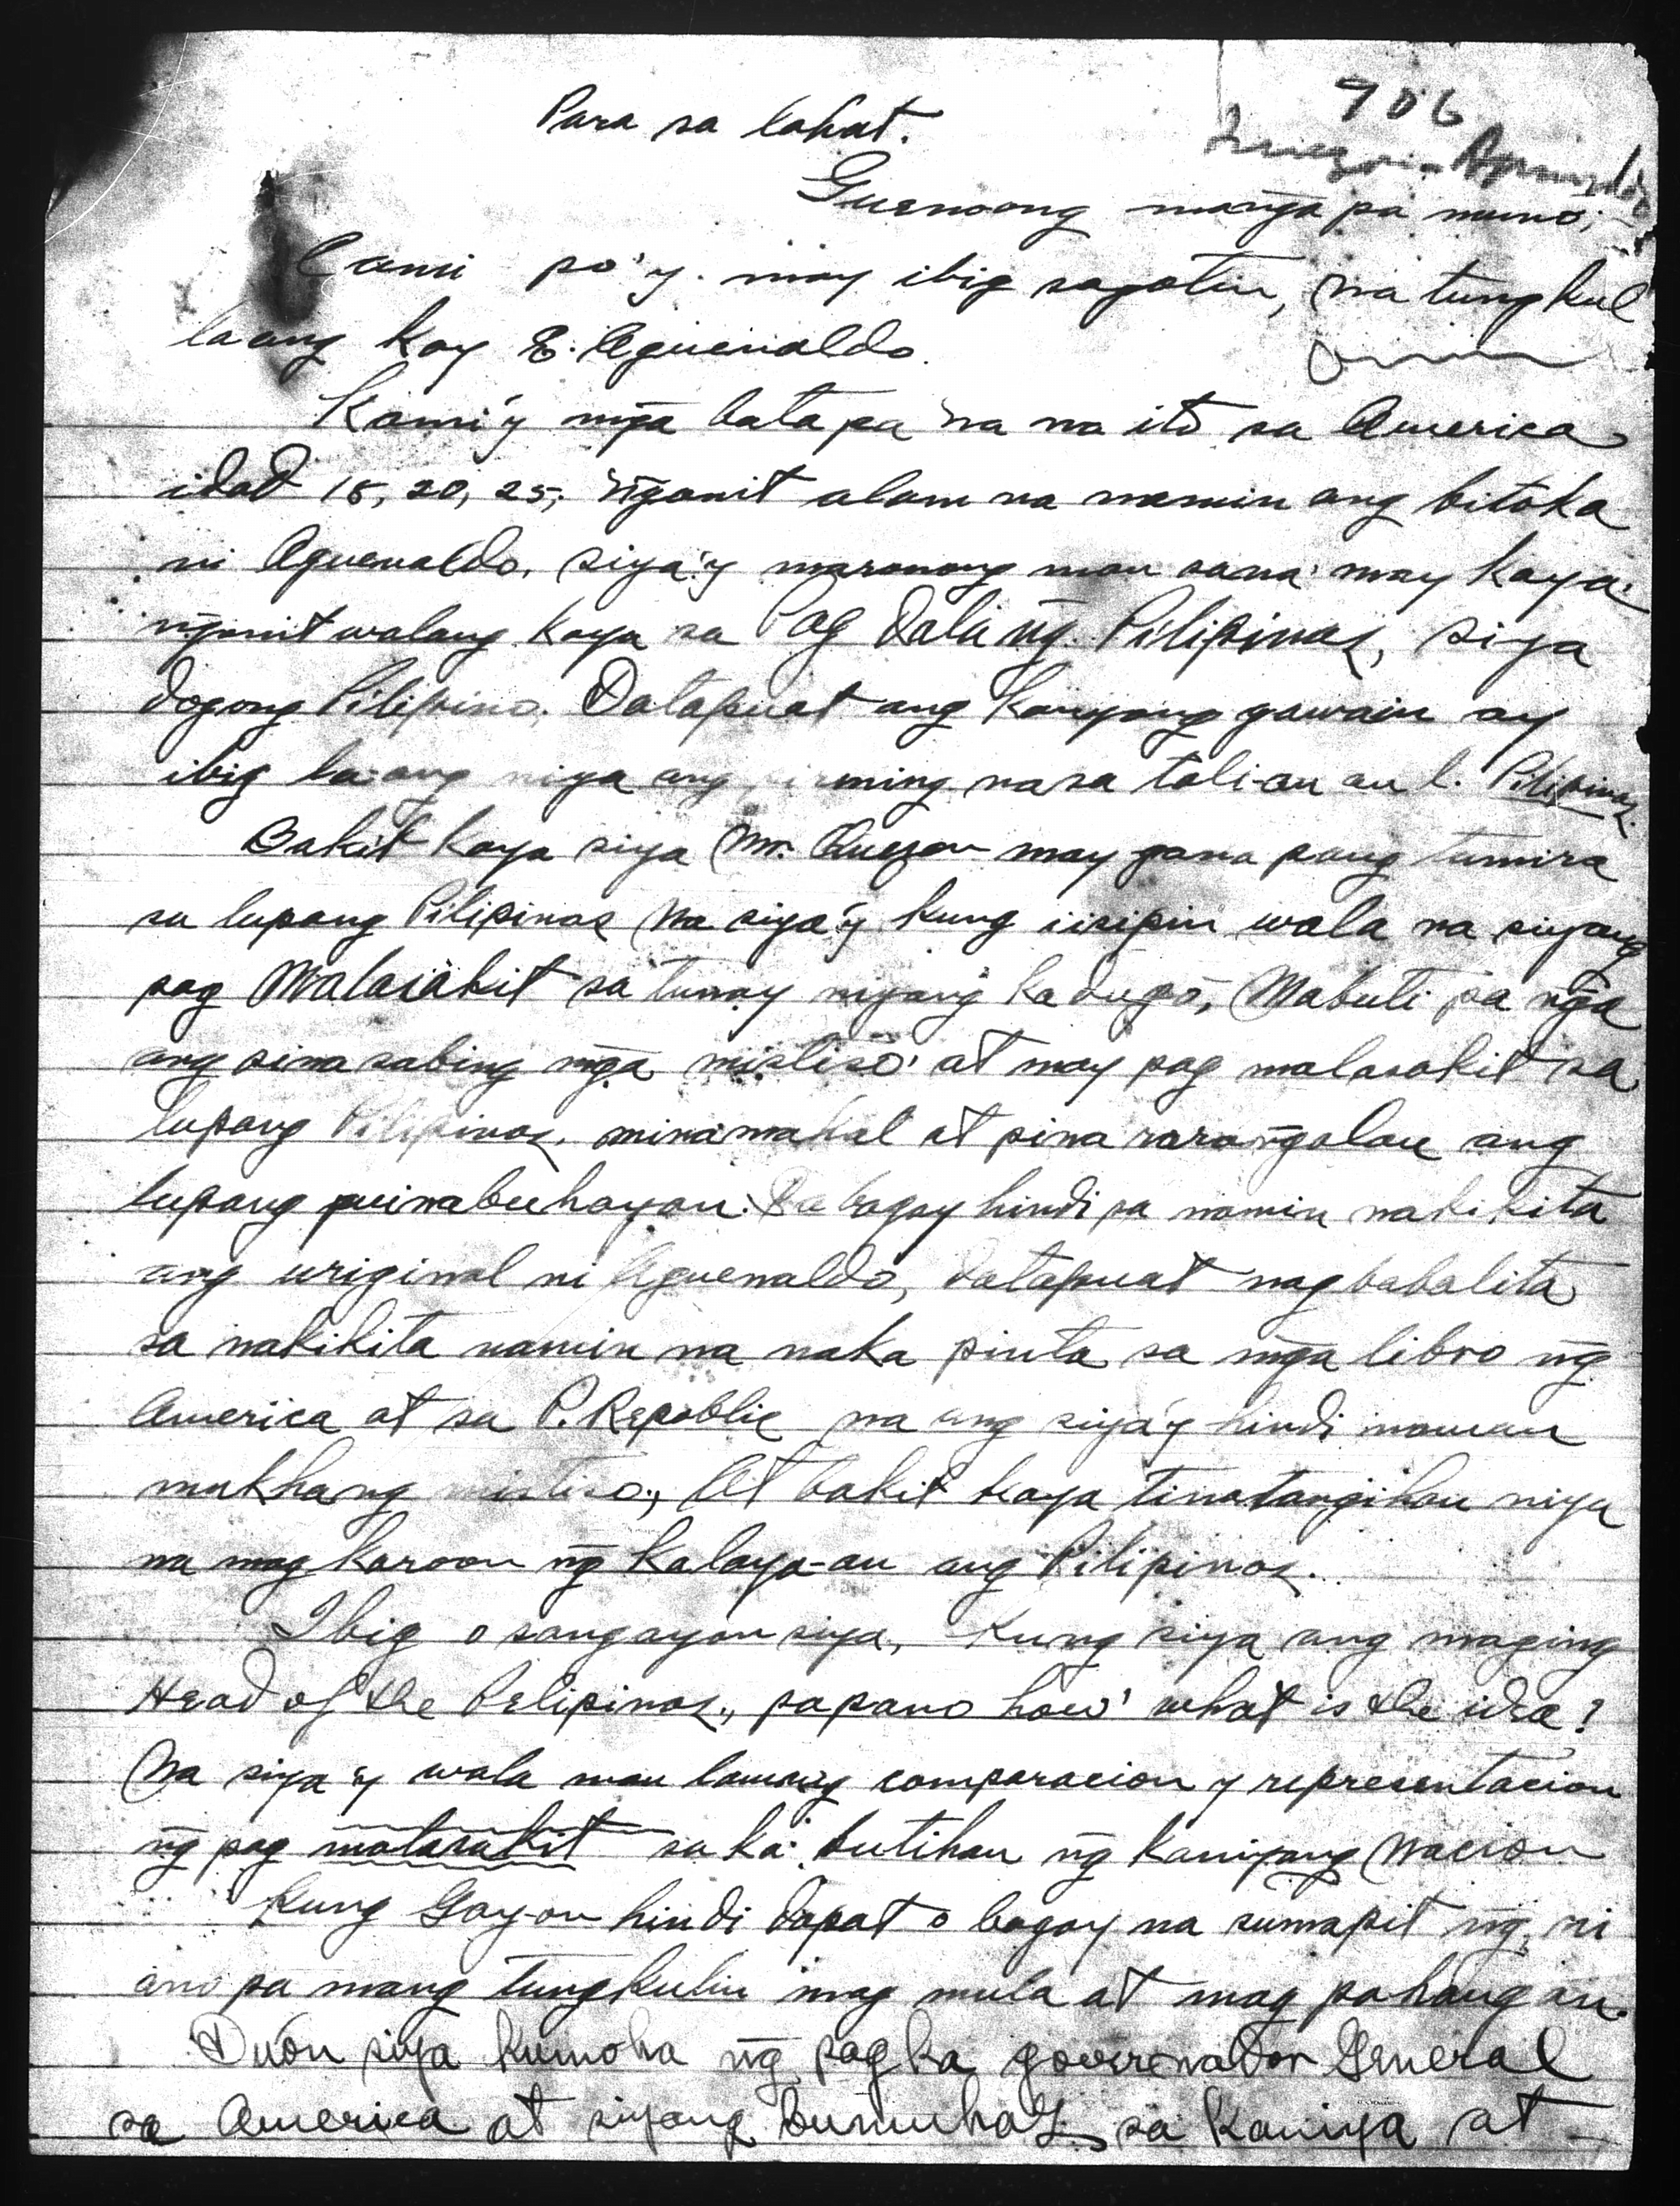 906
Para sa lahat.
Guenoong manga pa muno;
Cami po'y may ibig sagotin, na tungkul
laang kay E. Aguenaldo.
Kami'y mg̃a bata pa na na ito sa America
idad 18, 20, 25; ng̃onit alam na namin ang bitoka
ni Aguenaldo, siya'y maronong man sana may kaya
ng̃onit walang kaya sa Pag dala ng̃ Pilipinas, siya
dogong Pilipino. Datapuat ang kanyang gawain ay
ibig la-ang niya ang ming nasa tali-an an l. Pilipinas.
Bakit kaya siya Mr. Quezon may gana pang tumira
sa lupang Pilipinas na siya'y kung iisipin wala na siyang
pag Malasakit sa tunay niyang ka dugo, Mabuti pa ng̃a
ang sina sabing mg̃a mistiso at may pag malasakit sa
lupang Pilipinas, minamahal at pina rarang̃alan ang
lupang puinabuhayan. Sa bagay hindi pa namin nakikita
ang uriginal ni Aguenaldo, datapuat nag babalita
sa nakikita namin na naka pinta sa mg̃a libro ng̃
America at sa P. Repablic na ang siya'y hindi naman
mukhang mistiso., At bakit kaya tinatangihan niya
na mag karoon ng̃ kalaya-an ang Pilipinas.
Ibig o sangayon siya, kung siya ang maging
Head of the Pelipinas., papano how' what is the idea?
Na siya'y wala man lamang comparacion y representacion
ng̃ pag malasakit sa ka butihan ng̃ kaniyang Nacion
Kung Gayon hindi dapat o bagay na sumapit ng̃, ni
ano pa mang tungkulin mag mula at mag pahangan.
Duon siya kumoha ng̃ pagka goverenador General
sa America at siyang bumuhay sa kaniya at